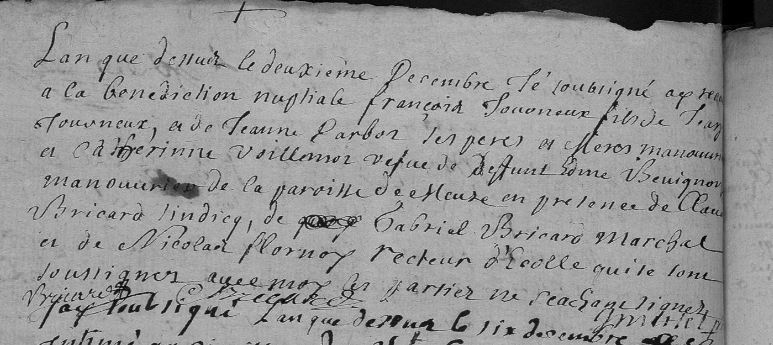 Lan que dessus le deuxième Decembre Jé soubsigné ay receu
a la benediction nuptiale françois Jouvneux fils de Jean
Jouvneux, et de Jeanne Barbor, ses peres et meres manouvrier
et Catherinne Voillemor vefve de deffunt Edme
manouvrier de la paroisse de Meuse en presence de Claude
Bricard sindicq, de Gabriel Bricard Marchal
et de Nicolas flornoy recteur d'Ecolle qui se sont
soussignez avec moy les partiez ne seachant signer
Bricard Bricard
Jay soubsigné Lan que dessus le six decembre